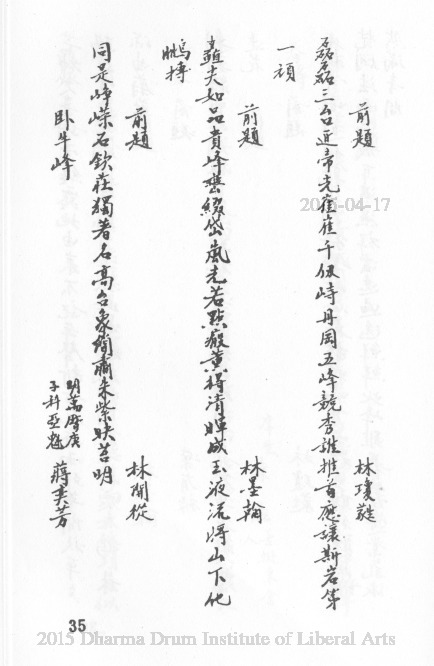 前題
林瓊蕤
磊磊三台近帝光崔崔千仭峙丹岡五峰競秀誰推首應讓斯岩第
一頑
前題
林墨翰
矗夫如品貴峰巒綴岱嵐光若點癥黃得清暉成玉液流將山下化
鵬摶
前題
林開從
同是崢嶸石欽莊獨著名高台象簡肅朱紫映苔明
臥牛峰
明萬曆庚
子科亞魁
蔣奕芳
35
2015-04-17
2015 Dharma Drum Institute of Liberal Arts